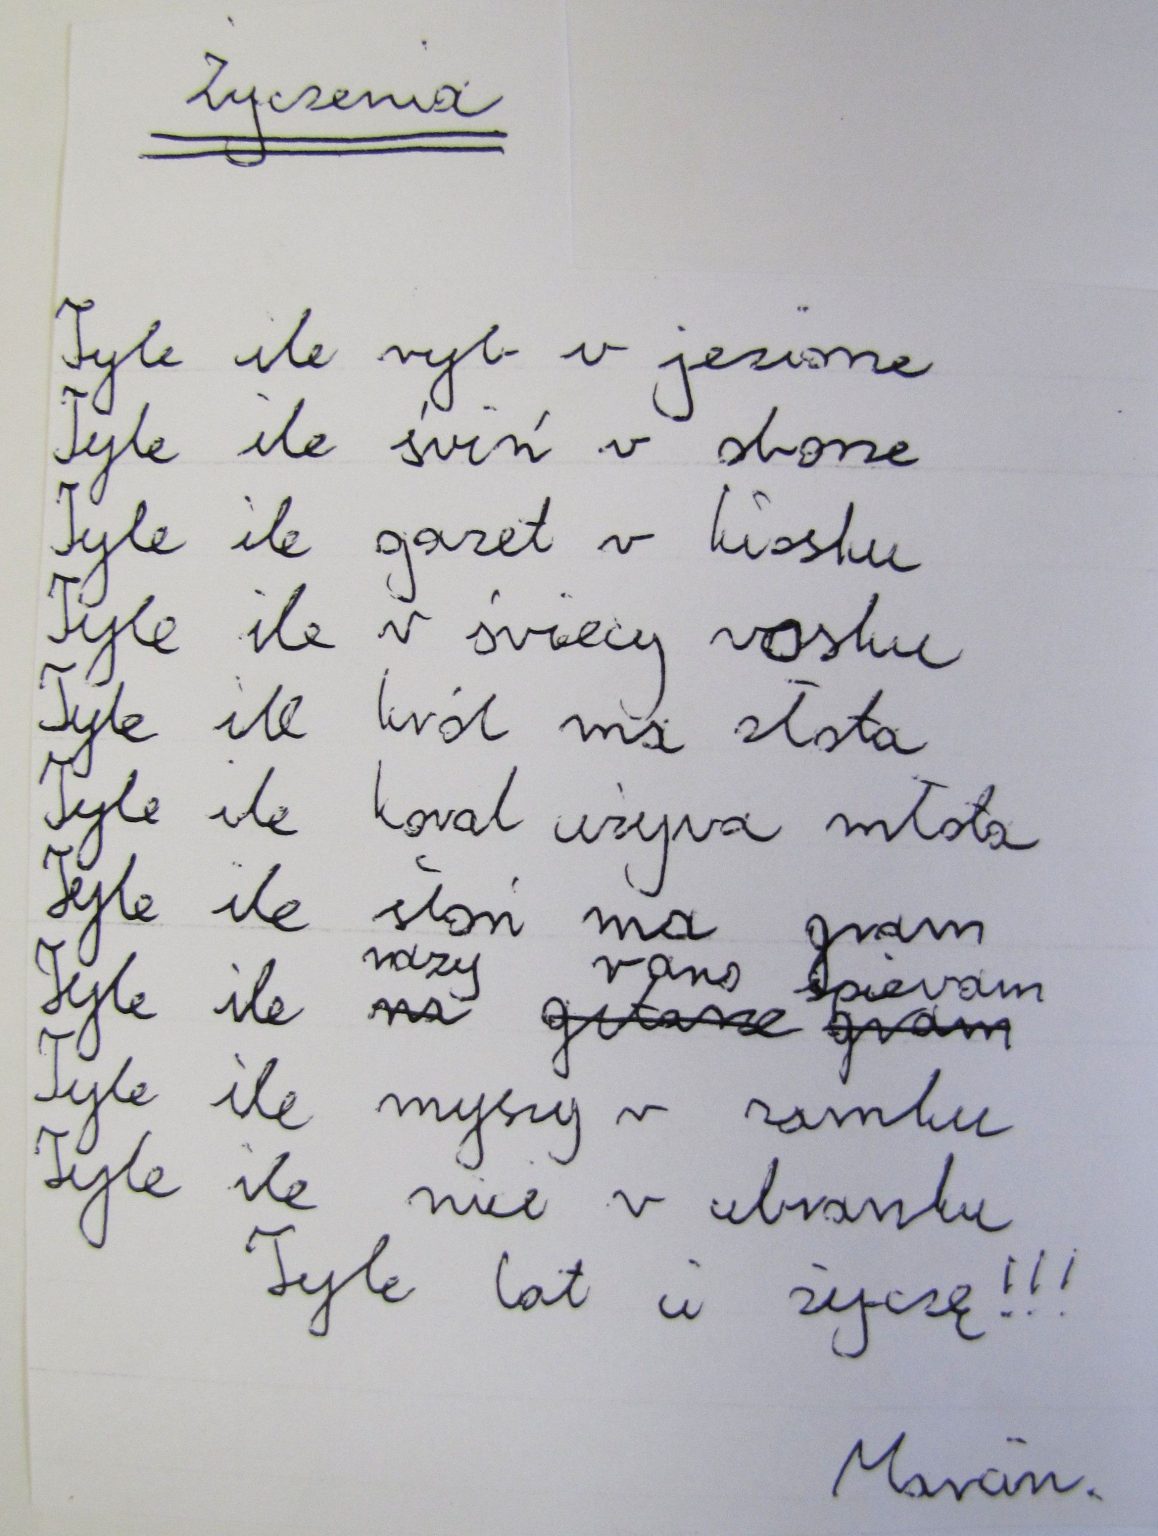 Życzenia
Tyle ile ryb v jeziorze
Tyle ile śviń v oborze
Tyle ile gazet v kiosku
Tyle ile v śviecy vosku
Tyle ile król ma złota
Tyle ile koval używa młota
Tyle ile słoń ma gram
razy rano śpievam
Tyle ile na gitarze gram
Tyle ile myszy v zamku
Tyle ile nici v ubranku
Tyle lat ci życzę!!!